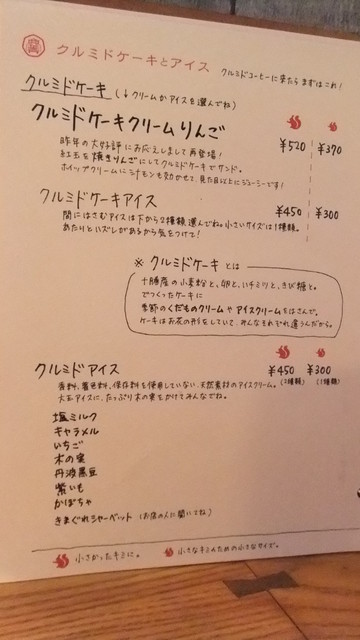 クルミドケーキとアイス クルミドコーヒーに来たら まずはこれ!
クルミドケーキ (↓クリームかアイスを選んでね)
クルミドケーキクリームりんご ¥520 ¥370
昨年の大好評にお応えしまして再登場!
紅玉を焼きりんごにしてクルミドケーキでサンド。
ホイップクリームにシナモンも効かせて、見た目以上にジューシーです!
クルミドケーキアイス ¥450 ¥300
間にはさむアイスは下から2種類選んでね。小さいサイズは1種類。
あたりとハズレがあるから気をつけて!
※ クルミドケーキ とは
十勝産の小麦粉と、卵と、ハチミツと、きび糖と。
でつくったケーキに
季節のくだものクリームやアイスクリームをはさんで。
ケーキはお花の形をしていて、みんなそれぞれ違うんだから。
クルミドアイス ¥450 ¥300
(2種類) (1種類)
香料、着色料、保存料を使用していない、天然素材のアイスクリーム。
大玉アイスに、たっぷり木の実をかけてみんなでね。
塩ミルク
キャラメル
いちご
木の実
丹波黒豆
紫いも
かぼちゃ
きまぐれシャーベット (お店の人に聞いてね)
小さかったキミに。 小さなキミのための小さなサイズ。